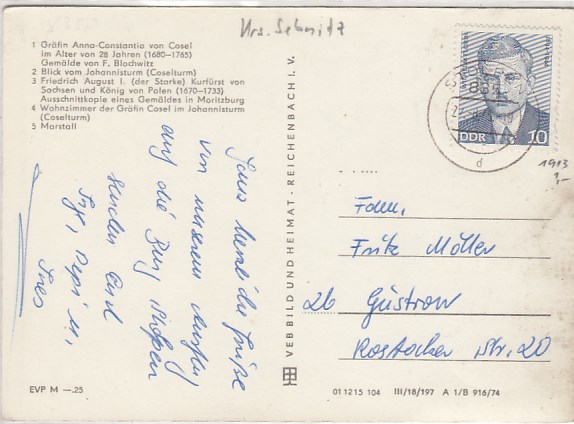 Krs. Sebnitz
1 Gräfin Anna-Constantia von Cosel
im Alter von 28 Jahren (1680—1765)
Gemälde von F. Blochwitz
2 Blick vom Johannisturm (Coselturm)
3 Friedrich August I. (der Starke) Kurfürst von
Sachsen und König von Polen (1670—1733)
Ausschnittkopie eines Gemäldes in Moritzburg
4 Wohnzimmer der Gräfin Cosel im Johannisturm
(Coselturm)
5 Marstall
Ganz herzliche Grüße
von unserem Ausflug
auf die Burg Stolpen
senden Euch
Ines
EVP M —.25
VEB BILD UND HEIMAT · REICHENBACH I. V.
DDR 10
d
1913
Fam.
Fritz Möller
26 Güstrow
Rostocker Str. 20
01 12 15 104 III/18/197 A 1/B 916/74